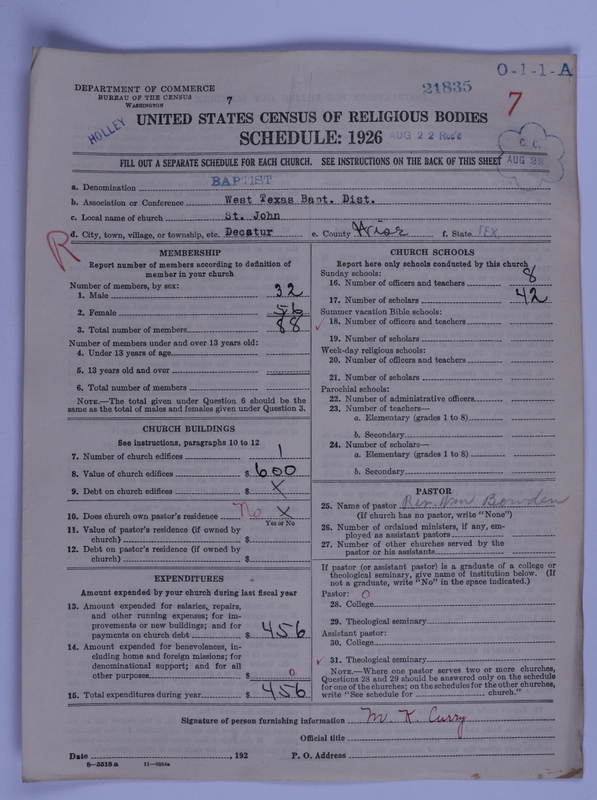 O-1-1-A
21835
DEPARTMENT OF COMMERCE
BUREAU OF THE CENSUS
WASHINGTON
7
7
HOLLEY
UNITED STATES CENSUS OF RELIGIOUS BODIES
SCHEDULE: 1926
AUG 22 Rec'd
C. C.
AUG 28
FILL OUT A SEPARATE SCHEDULE FOR EACH CHURCH. SEE INSTRUCTIONS ON THE BACK OF THIS SHEET
a. Denomination BAPTIST
b. Association or Conference West Texas Bapt. Dist.
c. Local name of church St. John
d. City, town, village, or township, etc. Decatur e. County Wise f. State TEX
R
MEMBERSHIP
Report number of members according to definition of
member in your church
Number of members, by sex:
1. Male 32
2. Female 56
3. Total number of members 88
Number of members under and over 13 years old:
4. Under 13 years of age
5. 13 years old and over
6. Total number of members
NOTE.—The total given under Question 6 should be the
same as the total of males and females given under Question 3.
CHURCH BUILDINGS
See instructions, paragraphs 10 to 12
7. Number of church edifices 1
8. Value of church edifices $ 600
9. Debt on church edifices $ X
10. Does church own pastor's residence No X
Yes or No
11. Value of pastor's residence (if owned by
church) $
12. Debt on pastor's residence (if owned by
church) $
EXPENDITURES
Amount expended by your church during last fiscal year
13. Amount expended for salaries, repairs,
and other running expenses; for im-
provements or new buildings; and for
payments on church debt $ 456
14. Amount expended for benevolences, in-
cluding home and foreign missions; for
denominational support; and for all
other purposes $ 0
15. Total expenditures during year $ 456
CHURCH SCHOOLS
Report here only schools conducted by this church
Sunday schools:
16. Number of officers and teachers 8
17. Number of scholars 42
Summer vacation Bible schools:
18. Number of officers and teachers
19. Number of scholars
Week-day religious schools:
20. Number of officers and teachers
21. Number of scholars
Parochial schools:
22. Number of administrative officers
23. Number of teachers—
a. Elementary (grades 1 to 8)
b. Secondary
24. Number of scholars—
a. Elementary (grades 1 to 8)
b. Secondary
PASTOR
25. Name of pastor Rev. Wm Bowden
(If church has no pastor, write "None")
26. Number of ordained ministers, if any, em-
ployed as assistant pastors
27. Number of other churches served by the
pastor or his assistants
If pastor (or assistant pastor) is a graduate of a college or
theological seminary, give name of institution below. (If
not a graduate, write "No" in the space indicated.)
Pastor: 0
28. College
29. Theological seminary
Assistant pastor:
30. College
31. Theological seminary
NOTE.—Where one pastor serves two or more churches,
Questions 28 and 29 should be answered only on the schedule
for one of the churches; on the schedules for the other churches,
write "See schedule for church."
Signature of person furnishing information M. K. Curry
Official title
Date , 192 P. O. Address
8—5518a